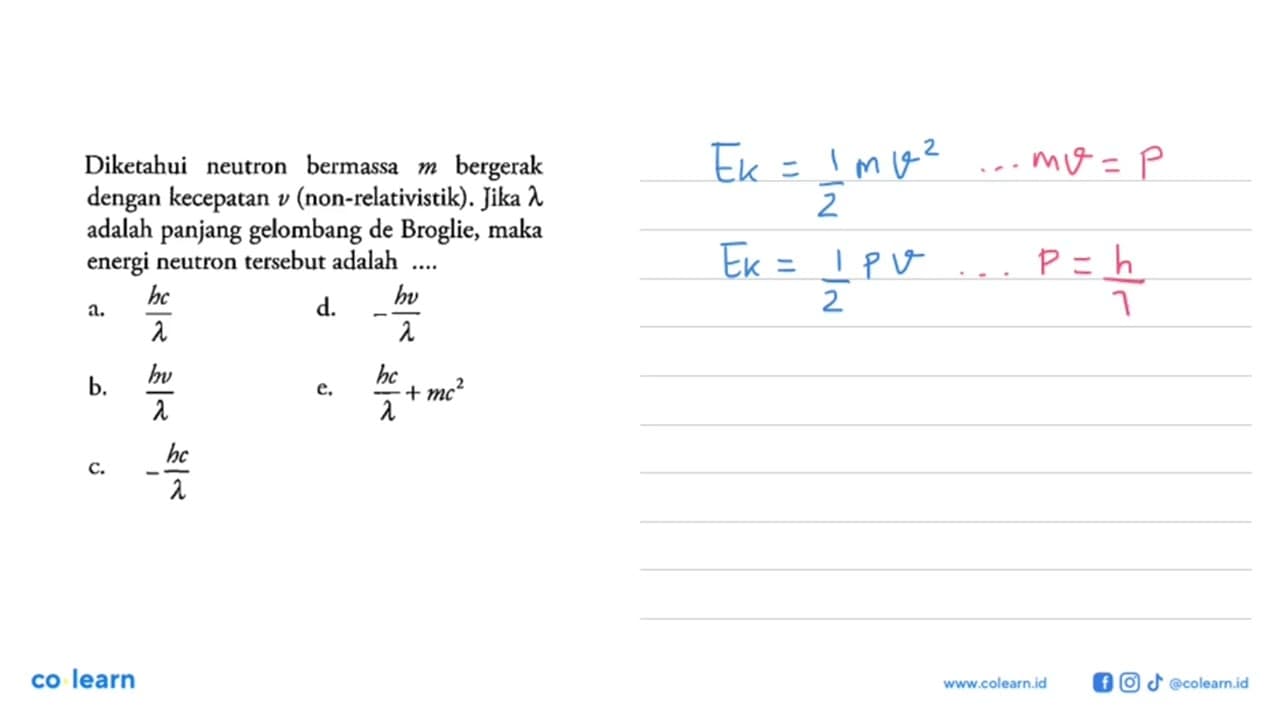 Diketahui neutron bermassa m bergerak
dengan kecepatan v (non-relativistik). Jika λ
adalah panjang gelombang de Broglie, maka
energi neutron tersebut adalah ....
a. hc/λ
b. hv/λ
c. -hc/λ
d. -hv/λ
e. hc/λ + mc²
Ek = 1/2 m v² ... mv = P
Ek = 1/2 P v ... P = h/λ
co learn
www.colearn.id @colearn.id